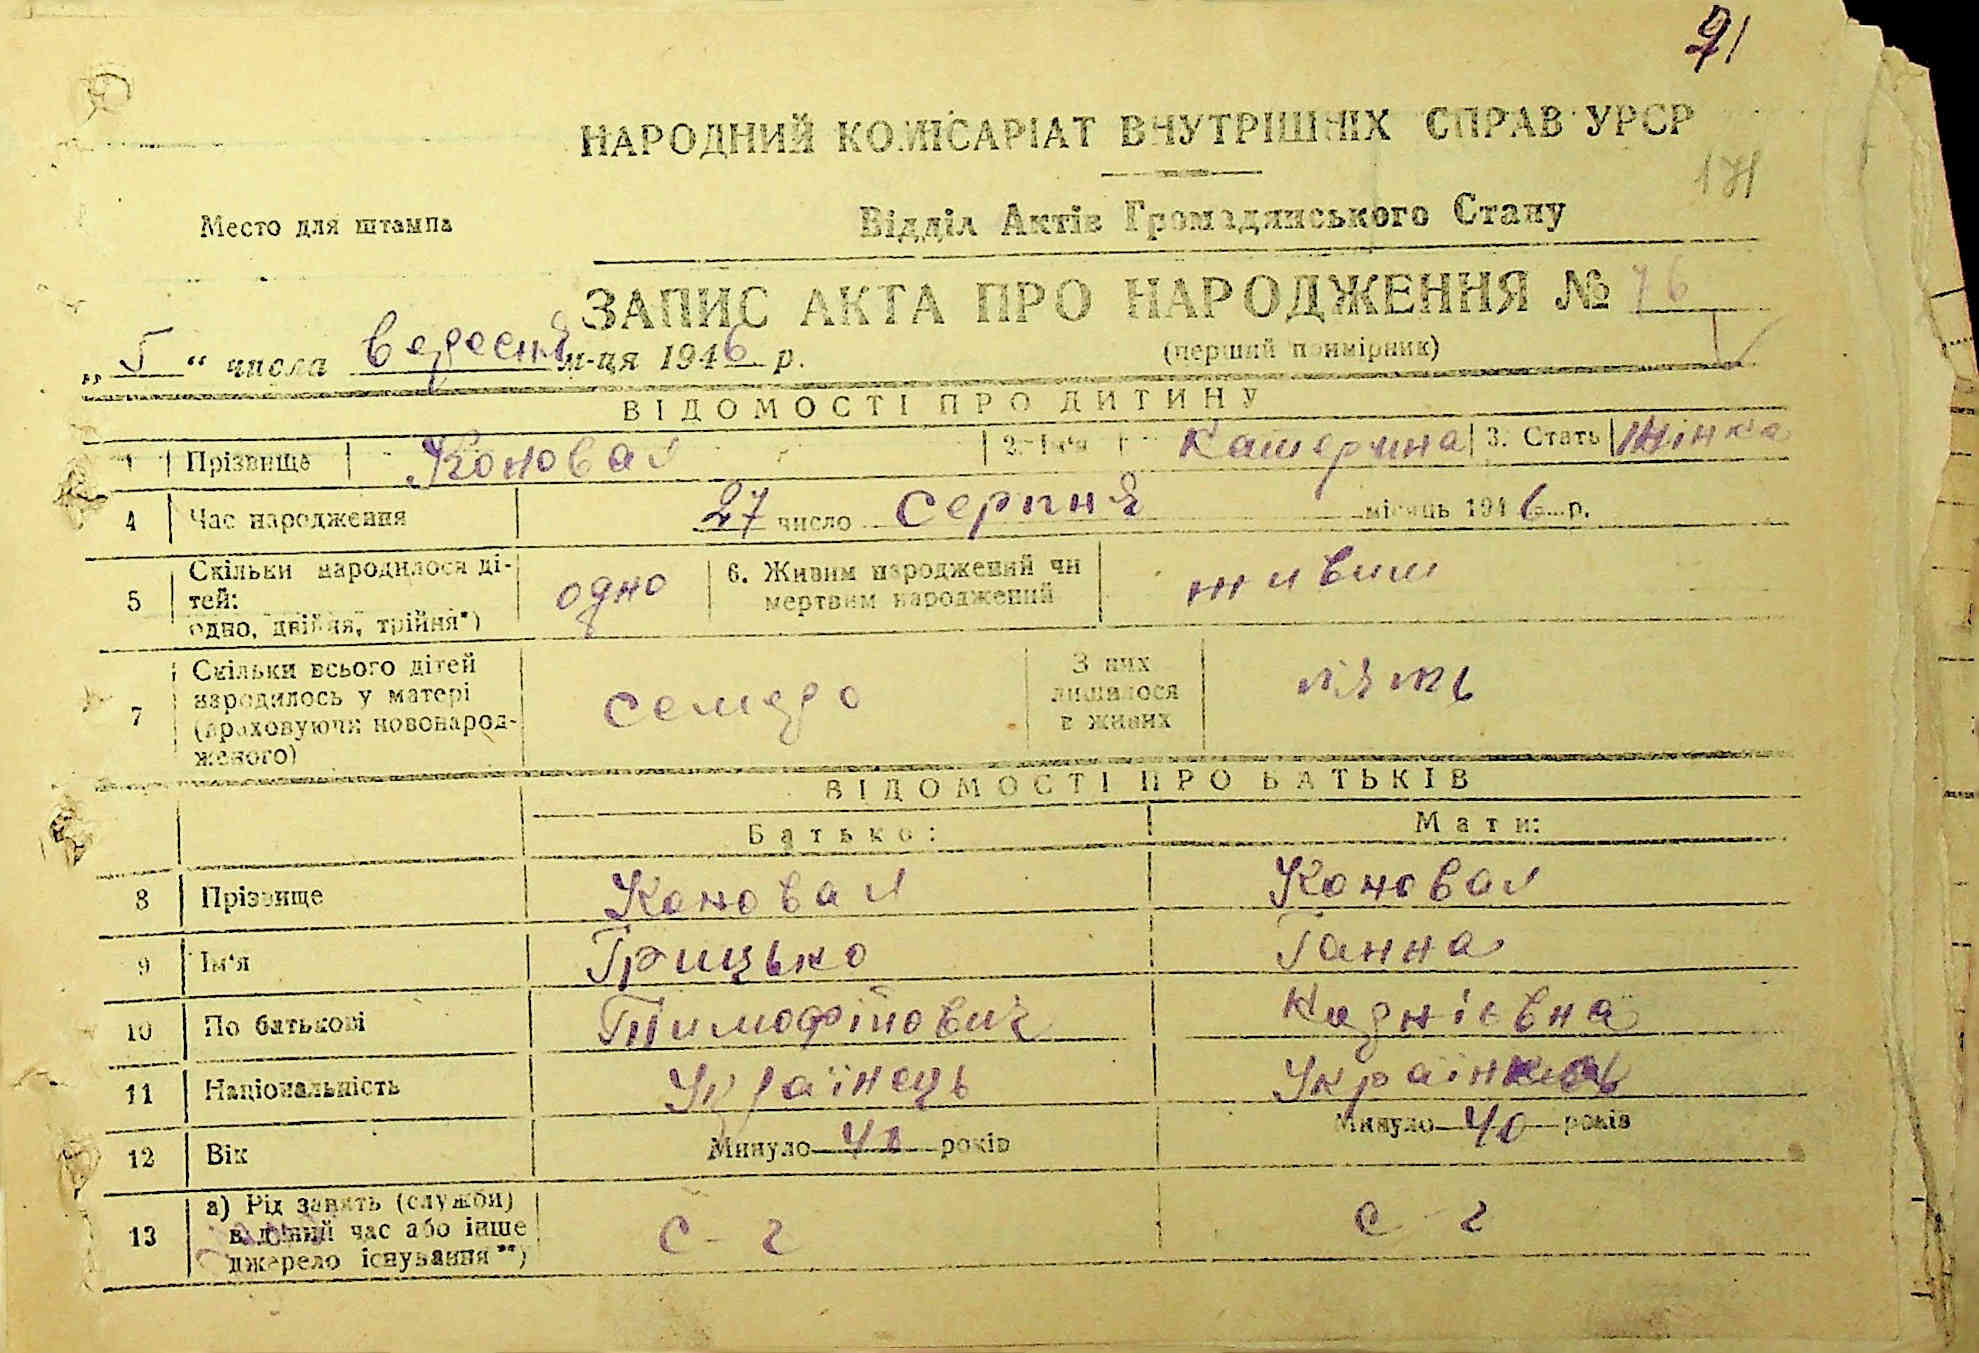 НАРОДНИЙ КОМІСАРІАТ ВНУТРІШНІХ СПРАВ УРСР
171
Место для штампа
Відділ Актів Громадянського Стану
ЗАПИС АКТА ПРО НАРОДЖЕННЯ № 76
„ 5 “ числа вересня м-ця 1946 р.
(перший примірник)
ВІДОМОСТІ ПРО ДИТИНУ
1 Прізвище Коновал 2. Ім‘я Катерина 3. Стать Жінка
4 Час народження 27 число Серпня місяць 1946 р.
5 Скільки народилося ді-
тей:
одно, двійня, трійня*) одно 6. Живим народжений чи
мертвим народжений живим
7 Скільки всього дітей
народилось у матері
(враховуючи новонарод-
женого) семеро З них
лишилося
в живих пять
ВІДОМОСТІ ПРО БАТЬКІВ
Батько: Мати:
8 Прізвище Коновал Коновал
9 Ім‘я Грицько Ганна
10 По батькові Тимофійович
11 Національність Українець
12 Вік Минуло років Минуло 40 років
13 а) Рід занять (служби)
в даний час або інше
джерело існування**) с-г с-г